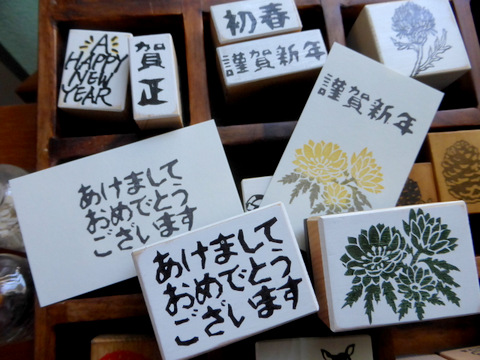 A
HAPPY
NEW
YEAR
賀正
初春
謹賀新年
謹賀新年
あけまして
おめでとう
ございます
あけまして
おめでとう
ございます